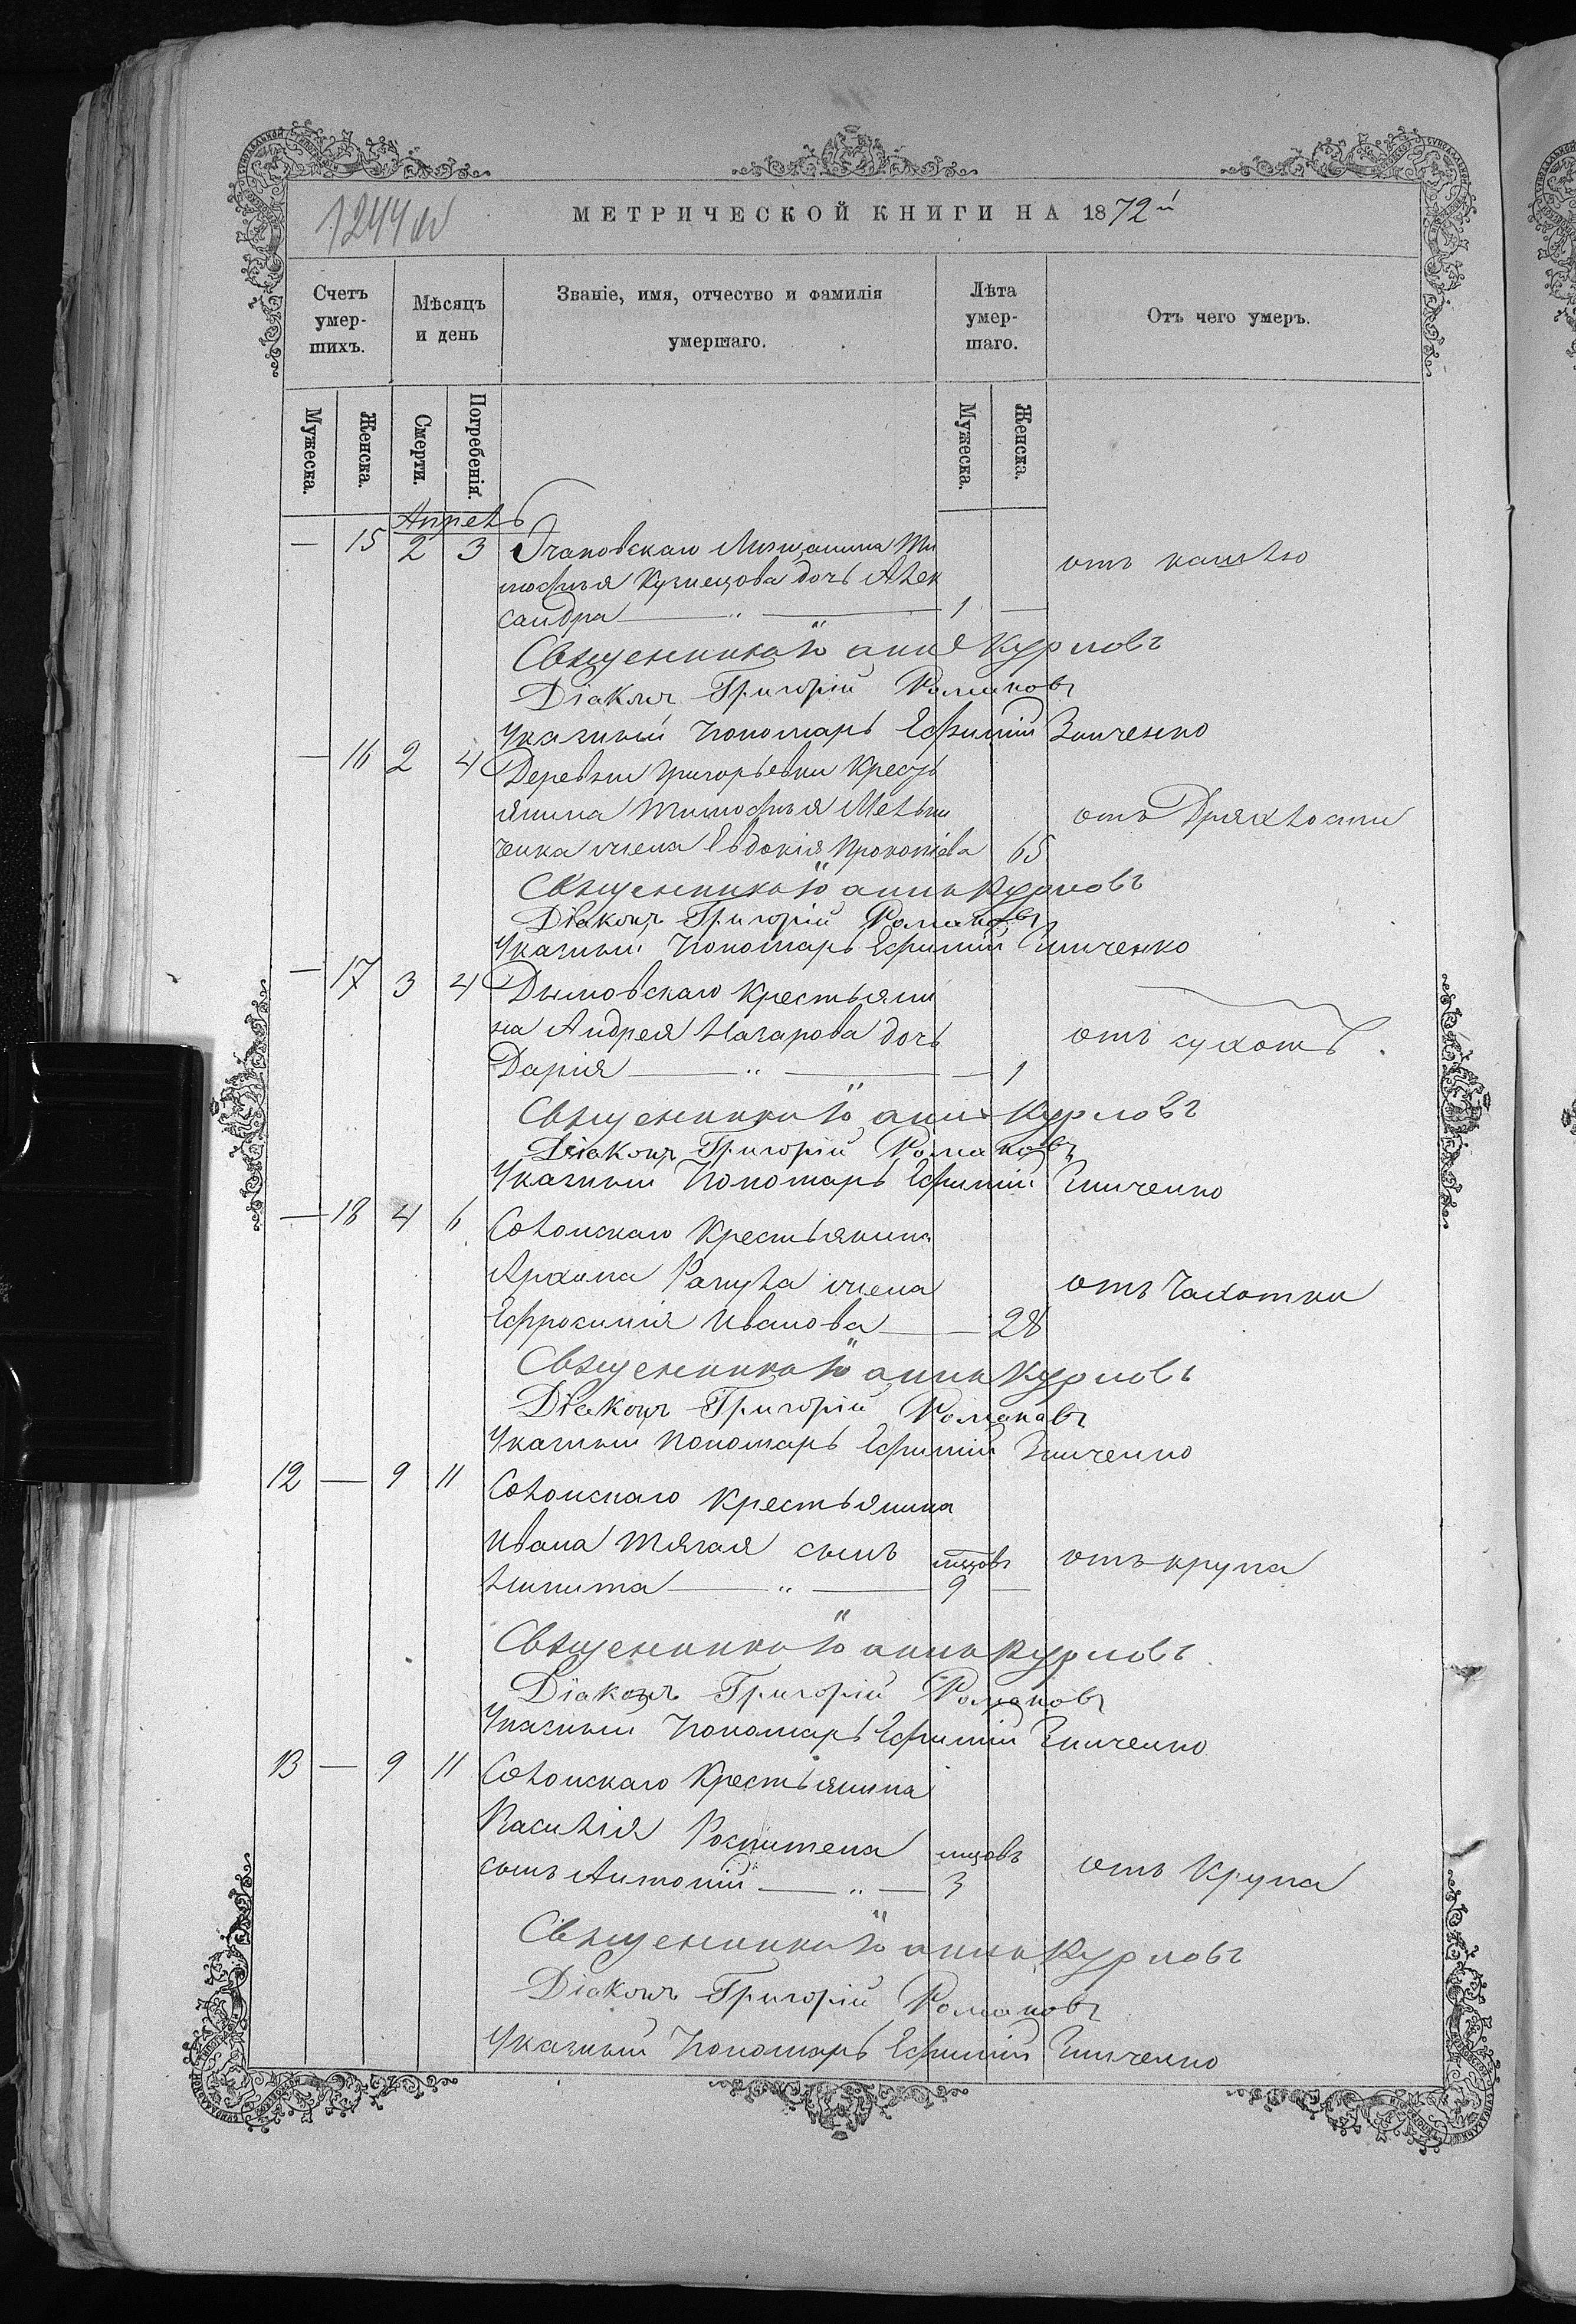 1244
МЕТРИЧЕСКОЙ КНИГИ НА 1872й
Счетъ умер-шихъ.
Мѣсяцъ и день
Званіе, имя, отчество и фамилія умершаго.
Лѣта умер-шаго.
Отъ чего умеръ.
Мужеска.
Женска.
Смерти.
Погребенія.
Мужеска.
Женска.
Апрель
— 15 2 3 Очаковскаго Мѣщанина Ти
мофѣя Кузнецова дочь Алек отъ кашлю
сандра — „ — 1 —
Священникъ Іоаннъ Курловъ
Діаконъ Григорій Романовъ
Указный Пономарь Ефимій Зинченко
— 16 2 4 Деревни Григорьевки Крестья
янина Тимофѣя Мельни отъ Дряхлости
ченка жена Евдокія Прокопіева 65
Священникъ Іоаннъ Курловъ
Діаконъ Григорій Романовъ
Указный Пономарь Ефимій Зинченко
— 17 3 4 Дымовскаго Крестьяни
на Андрея Назарова дочь отъ сухотъ.
Дарія — „ — — 1
Священникъ Іоаннъ Курловъ
Діаконъ Григорій Романовъ
Указный Пономарь Ефимій Зинченко
— 18 4 6 Солонскаго Крестьянина
Архипа жена отъ Чахотки
Ефросинія Иванова — — 28
Священникъ Іоаннъ Курловъ
Діаконъ Григорій Романовъ
Указный Пономарь Ефимій Зинченко
12 — 9 11 Солонскаго Крестьянина
Ивана Тягая сынъ мцовъ отъ крупа
Никита — „ — 9 —
Священникъ Іоаннъ Курловъ
Діаконъ Григорій Романовъ
Указный Пономарь Ефимій Зинченко
13 — 9 11 Солонскаго Крестьянина
Василія мцовъ
сынъ Антоній — „ — 3 отъ Крупа
Священникъ Іоаннъ Курловъ
Діаконъ Григорій Романовъ
Указный Пономарь Ефимій Зинченко